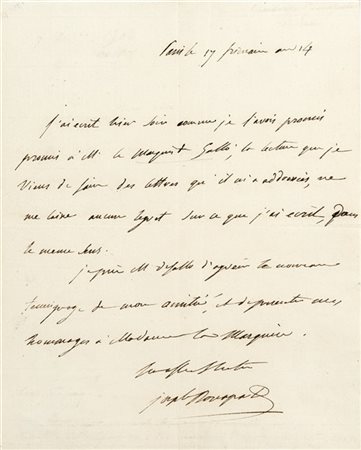 Paris le 17 frimaire an 14
J'ai écrit hier soir comme je l'avois promis
promis à M. le Marquis Gallo, la lecture que je
viens de faire des lettres qu'il m'a addressées, ne
me laisse aucun regret sur ce que j'ai écrit, dans
le meme sens.
je prie M. de Gallo d'agréer le nouveau
temoignage de mon amitié, et de presenter mes
hommages à Madame la Marquise.
joseph Bonaparte